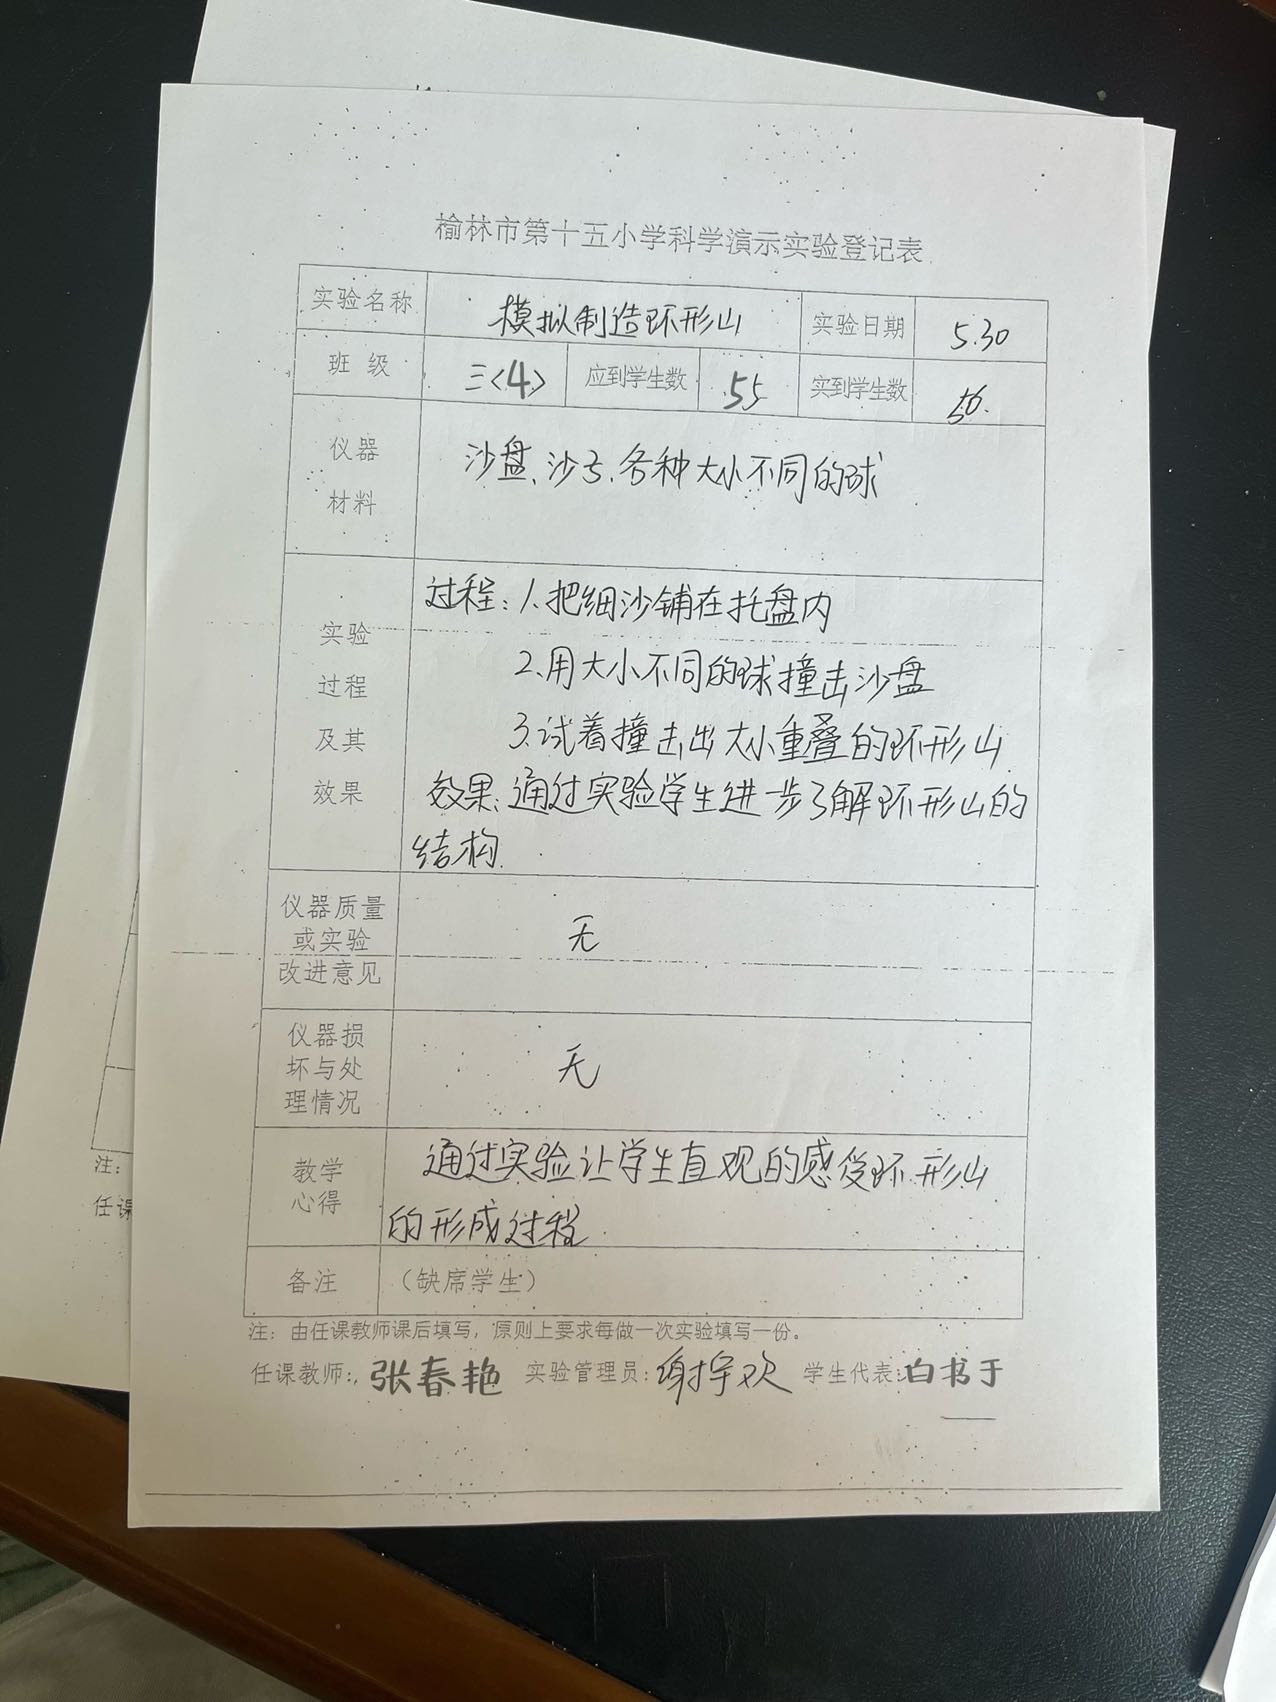 榆林市第十五小学科学演示实验登记表
实验名称 模拟制造环形山 实验日期 5.30
班级 三<4> 应到学生数 55 实到学生数
仪器
材料
沙盘、沙子、各种大小不同的球
实验
过程
及其
效果
过程：1.把细沙铺在托盘内
2.用大小不同的球撞击沙盘
3.试着撞击出大小重叠的环形山
效果：通过实验学生进一步了解环形山的
结构.
仪器质量
或实验
改进意见
无
仪器损
坏与处
理情况
无
教学
心得
通过实验让学生直观的感受环形山
的形成过程
备注 （缺席学生）
注：由任课教师课后填写，原则上要求每做一次实验填写一份。
任课教师：张春艳 实验管理员： 学生代表：白书于
注：
任课